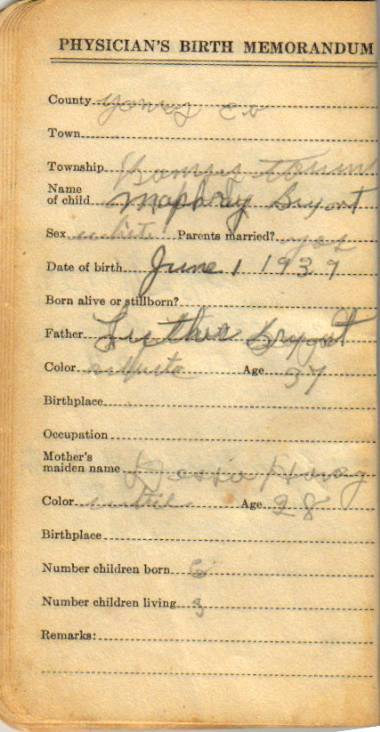 PHYSICIAN'S BIRTH MEMORANDUM
County
Town
Township
Name
of child Bryant
Sex white Parents married? yes
Date of birth June 1 1939
Born alive or stillborn?
Father Luther Bryant
Color Age 37
Birthplace
Occupation
Mother's
maiden name
Color Age 28
Birthplace
Number children born
Number children living 3
Remarks: